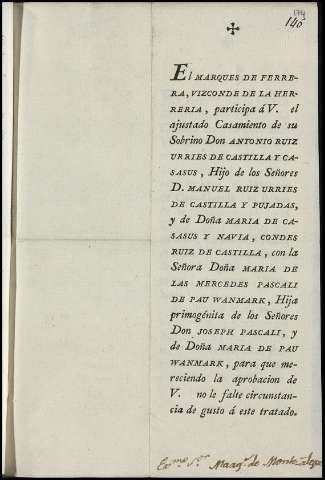 140
✠
El MARQUES DE FERRE-
RA, VIZCONDE DE LA HER-
RERIA, participa á V. el
ajustado Casamiento de su
Sobrino Don ANTONIO RUIZ
URRIES DE CASTILLA Y CA-
SASUS, Hijo de los Señores
D. MANUEL RUIZ URRIES
DE CASTILLA Y PUJADAS,
y de Doña MARIA DE CA-
SASUS Y NAVIA, CONDES
RUIZ DE CASTILLA, con la
Señora Doña MARIA DE
LAS MERCEDES PASCALI
DE PAU WANMARK, Hija
primogénita de los Señores
Don JOSEPH PASCALI, y
de Doña MARIA DE PAU
WANMARK, para que me-
reciendo la aprobacion de
V. no le falte circunstan-
cia de gusto á este tratado.
Exmo. Sor. Marqs. de